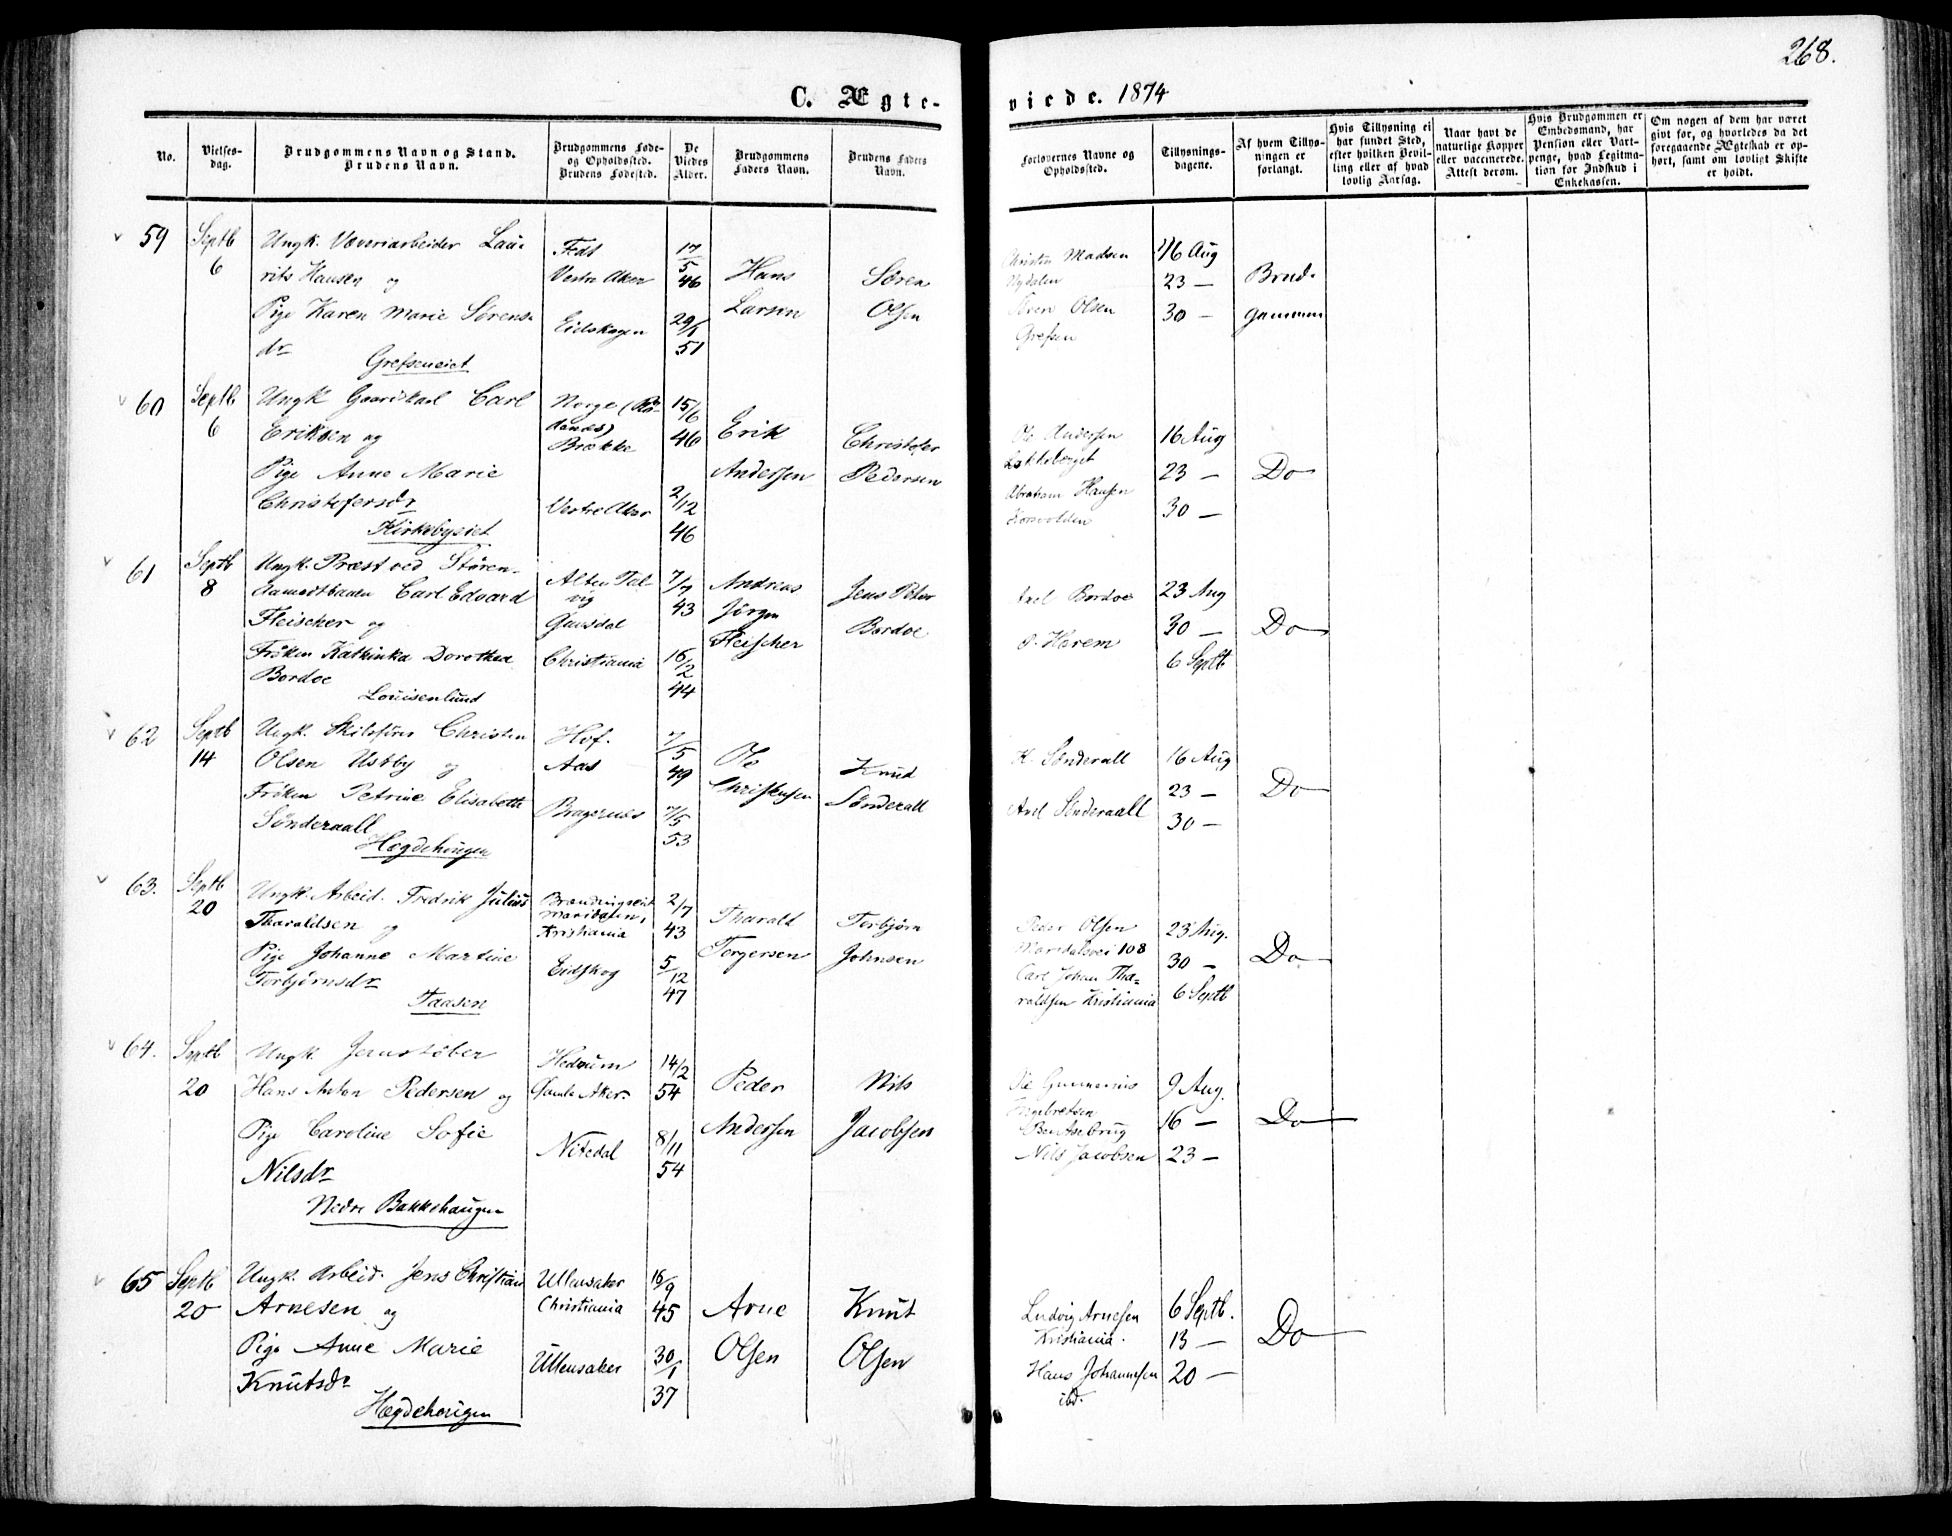 268.
C. Ægteviede. 1874
No.
Vielsesdag.
Brudgommens Navn og Stand.
Brudens Navn.
Brudgommens Fødeog Opholdssted.
Brudens Fødested.
De Viedes Alder.
Brudgommens Faders Navn.
Brudens Faders Navn.
Forlovernes Navne og Opholdssted.
Tillysningsdagene.
Af hvem Tillysningen er forlangt.
Hvis Tillysning ei har fundet Sted, efter hvilken Bevilling eller af hvad lovlig Aarsag.
Naar havt de naturlige Kopper eller vaccinerede. Attest derom.
Hvis Brudgommen er Embedsmand, har Pension eller Vartpenge, hvad Legitimation for Indskud i Enkekassen.
Om nogen af dem har været givt før, og hvorledes da det foregaaende Ægteskab er ophørt, samt om lovligt Skifte er holdt.
59 Septb 6
Ungk. Væveriarbeider Lauritz Hansen og
Pige Karen Marie Sørensdr
Grefseneiet
Fedt
Vestre Aker
Eidskogen
17/5 46
29/5 51
Hans Larsen
Søren Olsen
Christen Madsen
Nydalen
Søren Olsen
Grefsen
16 Aug
23 —
30 —
Brudgommen
60 Septb 6
Ungk Gaardskarl Carl
Eriksen og
Pige Anne Marie
Christofersdr
Kirkebyeiet
Norge
Brække
Vestre Aker
15/6 46
2/12 46
Erik Anderssen
Christofer Pedersen
Ole Anderssen
Abraham Hanssen
Korsvolden
16 Aug
23 —
30 —
Do
61 Septb 8
Ungk. Præst ved Størenaamodtbanen Carl Edvard
Fleischer og
Frøken Kathinka Dorothea
Bordoe
Louisenlund
Alten Talvig
Gausdal
Christiania
7/7 43
16/2 44
Andreas Jørgen Fleischer
Jens Peter Bordoe
Axel Bordoe
P. Harem
23 Aug
30 —
6 Septb
Do
62 Septb 14
Ungk. Christen
Olsen Usbby og
Frøken Petrine Elisabeth
Sønderaall
Hægdehougen
Hof.
Aas
Bragernes
7/5 49
7/5 53
Ole Christensen
Knud Sønderall
K. Sønderall
Axel Sønderaall
16 Aug
23 —
30 —
Do
63. Septb 20
Ungk. Arbeid. Fredrik Julius
Tharaldsen og
Pige Johanne Martine
Torbjørnsdr
Taasen
Maridalen,
Kristiania
Eidskog
2/7 43
5/12 47
Tharald Torgersen
Torbjørn Johnsen
Peder Olsen
Maridalsvei 108
Carl Johan Tharaldsen Kristiania
23 Aug.
30 —
6 Septb
Do
64. Septb 20
Ungk. Jernstøber
Hans Anton Pedersen og
Pige Caroline Sofie
Nilsdr
Nedre Bakkehaugen
Hedrum
Gamle Aker
Nitedal
14/2 54
8/11 54
Peder Anderssen
Nils Jacobsen
Ole Gunnerius
Engebretsen
Bentsebrug
Nils Jacobsen
9 Aug.
16 —
23 —
Do
65 Septb 20
Ungk. Arbeid. Jens Christian
Arnesen og
Pige Anne Marie
Knutsdr
Hægdehougen
Ullensaker
Christiania
Ullensaker
16/9 45
30/1 37
Arne Olsen
Knut Olsen
Ludvig Arnesen
Kristiania.
Hans Johannesen
ibd.
6 Septb.
13 —
20 —
Do